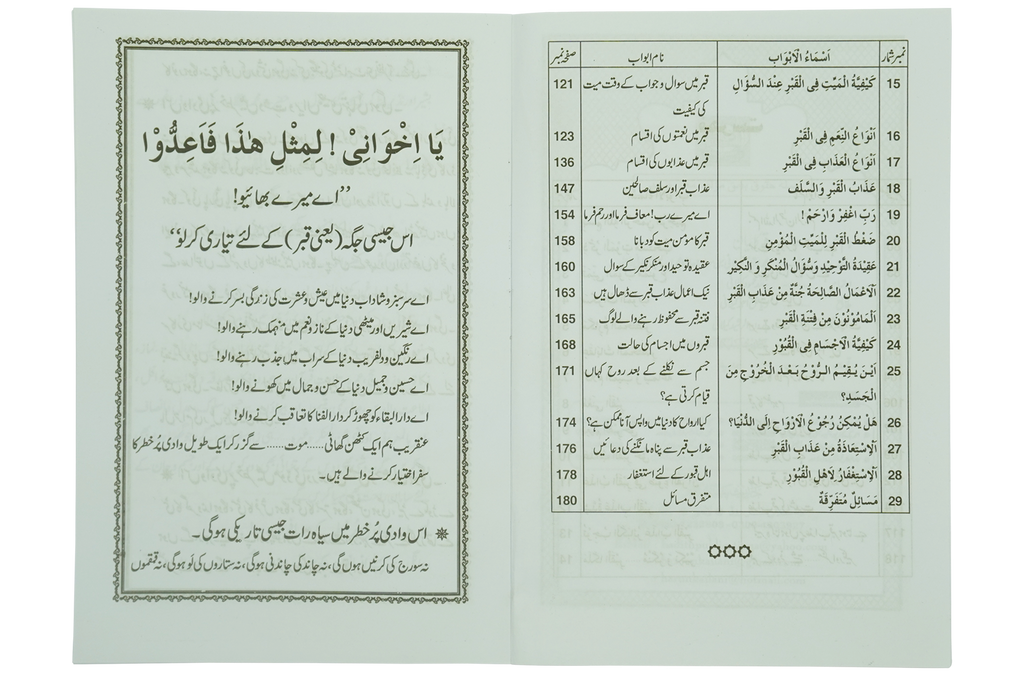 نمبر شمار اَسْمَاءُ الْاَبْوَاب نام ابواب صفحہ نمبر
15 كَيْفِيَّةُ الْمَيِّتِ فِى الْقَبْرِ عِنْدَ السُّؤَالِ قبر میں سوال و جواب کے وقت میت 121
کی کیفیت
16 اَنْوَاعُ النِّعَمِ فِى الْقَبْرِ قبر میں نعمتوں کی اقسام 123
17 اَنْوَاعُ الْعَذَابِ فِى الْقَبْرِ قبر میں عذابوں کی اقسام 136
18 عَذَابُ الْقَبْرِ وَالسَّلَف عذاب قبر اور سلف صالحین 147
19 رَبِّ اغْفِرْ وَارْحَمْ! اے میرے رب! معاف فرما اور رحم فرما 154
20 ضَغْطُ الْقَبْرِ لِلْمَيِّتِ الْمُؤْمِنِ قبر کا مؤمن میت کو دبانا 158
21 عَقِيْدَةُ التَّوْحِيْدِ وَسُؤَالُ الْمُنْكَرِ وَ النَّكِيْرِ عقیدہ توحید اور منکر نکیر کے سوال 160
22 اَلْاَعْمَالُ الصَّالِحَةُ جُنَّةٌ مِنْ عَذَابِ الْقَبْرِ نیک اعمال عذاب قبر سے ڈھال ہیں 163
23 اَلْمَأْمُوْنُوْنَ مِنْ فِتْنَةِ الْقَبْرِ فتنہ قبر سے محفوظ رہنے والے لوگ 165
24 كَيْفِيَّةُ الْاَجْسَامِ فِى الْقُبُوْرِ قبروں میں اجسام کی حالت 168
25 اَيْنَ يُقِيْمُ الرُّوْحُ بَعْدَ الْخُرُوْجِ مِنَ جسم سے نکلنے کے بعد روح کہاں 171
الْجَسَدِ؟ قیام کرتی ہے؟
26 هَلْ يُمْكِنُ رُجُوْعُ الْاَرْوَاحِ اِلَى الدُّنْيَا؟ کیا ارواح کا دنیا میں واپس آنا ممکن ہے؟ 174
27 اَلْاِسْتِعَاذَةُ مِنْ عَذَابِ الْقَبْرِ عذاب قبر سے پناہ مانگنے کی دعائیں 176
28 اَلْاِسْتِغْفَارُ لِاَهْلِ الْقُبُوْرِ اہل قبور کے لئے استغفار 178
29 مَسَائِلُ مُتَفَرِّقَة متفرق مسائل 180
يَا اِخْوَانِىْ! لِمِثْلِ هٰذَا فَاَعِدُّوْا
”اے میرے بھائیو!
اس جیسی جگہ (یعنی قبر) کے لئے تیاری کر لو“
اے سرسبز و شاداب دنیا میں عیش و عشرت کی زندگی بسر کرنے والو!
اے شیریں اور میٹھی دنیا کے ناز و نعم میں منہمک رہنے والو!
اے رنگین و دلفریب دنیا کے سراب میں جذب رہنے والو!
اے حسین و جمیل دنیا کے حسن و جمال میں کھونے والو!
اے دار البقاء کو چھوڑ کر دار الفنا کا تعاقب کرنے والو!
عنقریب ہم ایک کٹھن گھاٹی......موت......سے گزر کر ایک طویل وادی پُر خطر کا
سفر اختیار کرنے والے ہیں۔
❋ اس وادی پُر خطر میں سیاہ رات جیسی تاریکی ہوگی۔
نہ سورج کی کرنیں ہوں گی، نہ چاند کی چاندنی ہوگی، نہ ستاروں کی لَو ہوگی، نہ قمقموں